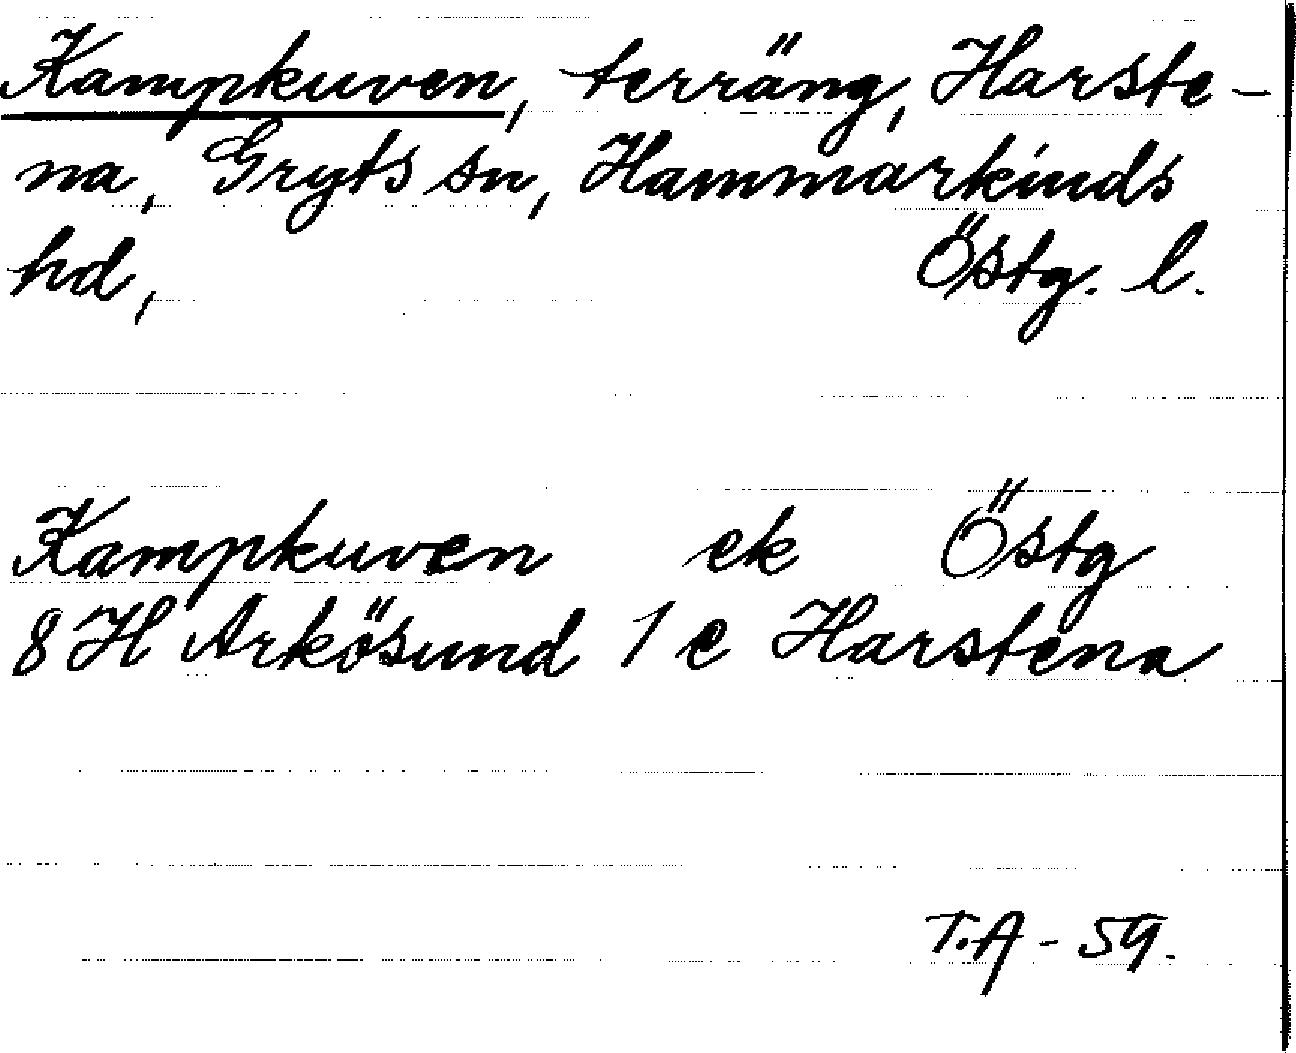 Kampkuven, terräng, Harste-
na, Gryts sn, Hammarkinds
hd, Östg. l.
Kampkuven ek Östg
8 H Arkösund 1 e Harstena
T.A - 59.